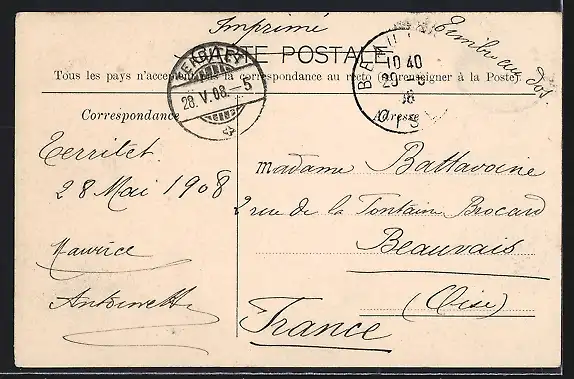 Imprimé
Timbre au dos.
CARTE POSTALE
Tous les pays n'acceptent pas la correspondance au recto (se renseigner à la Poste)
TERRITET
28.V.08.-5
BEAUVAIS
10 40
29 -5
08
OISE
Correspondance
Adresse
Territet.
28 Mai 1908
Maurice
Antoinette
Madame Battavoine
2 rue de la Fontain Brocard
Beauvais
(Oise)
France